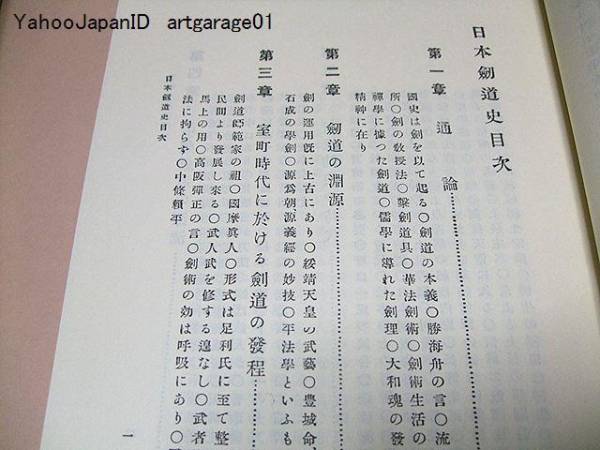 YahooJapanID artgarage01
日本劍道史目次
第一章 通論
國史は劍を以て起る〇劍道の本義〇勝海舟の言〇流
所〇劍の敎授法〇擊劍道具〇華法劍術〇劍術生活の
禪學に據つた劍道〇儒學に導れた劍理〇大和魂の發
精神に在り
第二章 劒道の淵源
劍の運用旣に上古にあり〇綏靖天皇の武藝〇豊城命
石成の學劍〇源爲朝源義經の妙技〇平法學といふも
第三章 室町時代に於ける劍道の發程
劍道師範家の祖〇國摩眞人〇形式は足利氏に至て整
民間より發展し來る〇武人武を修する遑なし〇武者
馬上の用〇高阪彈正の言〇劍術の効は呼吸にあり〇
法に拘らず〇中條賴平
日本劍道史目次
一